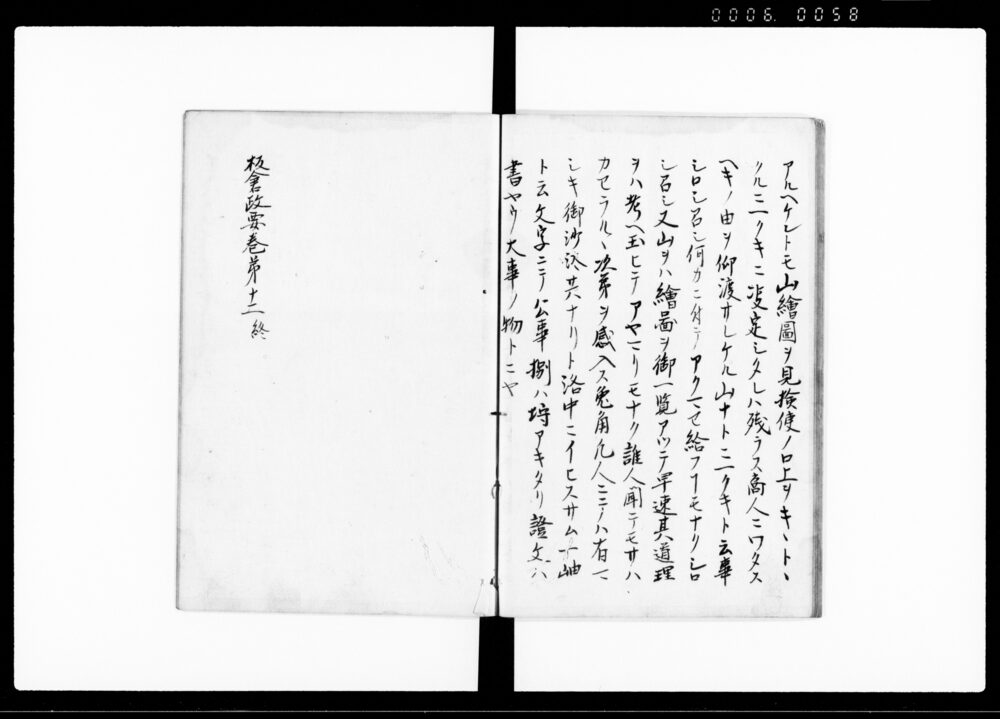 0006. 0058
アルヘケレトモ山繪圖ヲ見撿使ノ口上ヲキヽトヽ
クルニニクキニ決定シタレハ残ラス商人ニワタス
ヘキノ由ヲ仰渡サレケル山ナトニニクキト云事
シロシ召シ何カニ付テアクマセ給フヿモナクシロ
シ召シ又山ヲハ繪圖ヲ御一覧アツテ早速其道理
ヲハ考ヘ玉ヒテアヤマリモナク誰人聞テモサハ
カセラルヽ次第ヲ感入ス兎角凡人ニテハ有マ
シキ御沙汰共ナリト洛中ニイヒスサム
ト云文字ニテ公事捌ハ埒アキタリ證文ハ
書ヤウ大事ノ物トニヤ
板倉政要巻第十二終